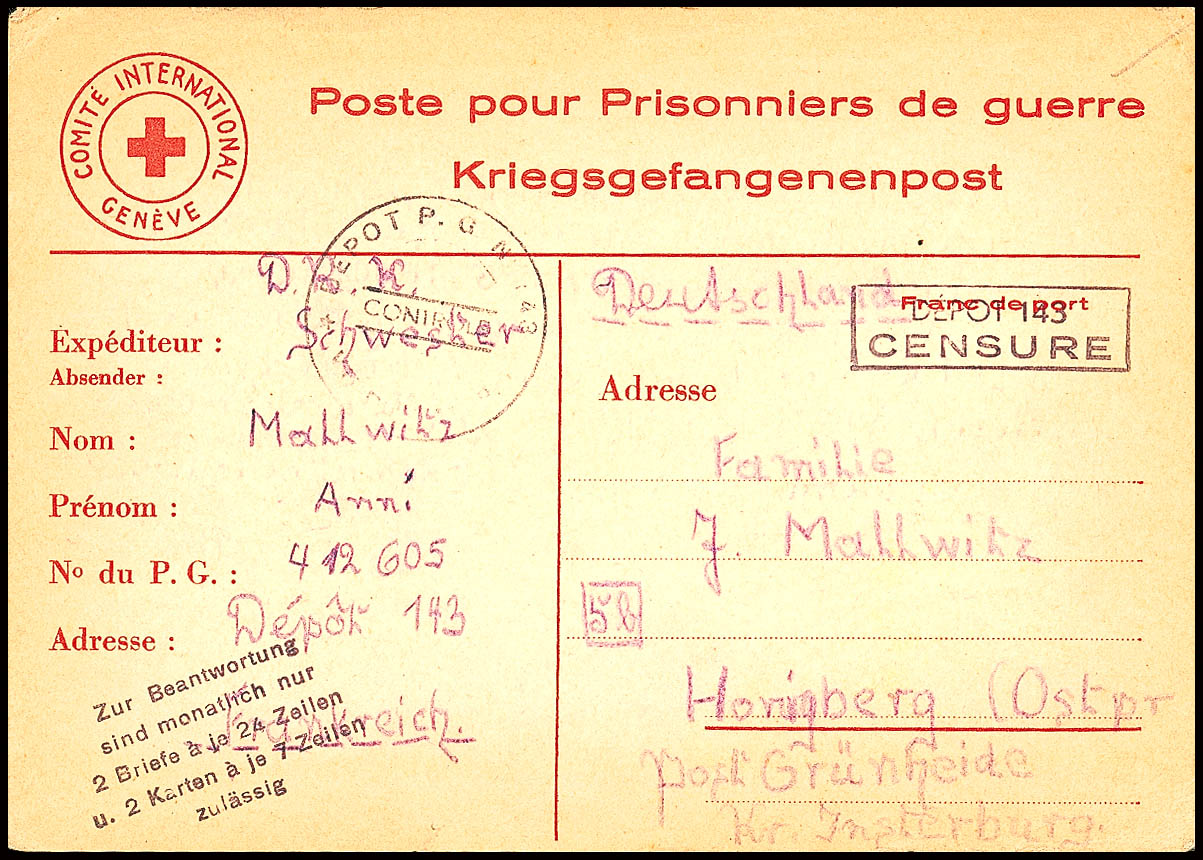 COMITÉ INTERNATIONAL
GENÈVE
Poste pour Prisonniers de guerre
Kriegsgefangenenpost
DEPOT P. G. N° 143
CONTROLE
D. R. K.
Expéditeur : Schwester
Absender :
Nom : Mallwitz
Prénom : Anni
No du P. G. : 412 605
Adresse : Dépôt 143
Frankreich.
Zur Beantwortung
sind monatlich nur
2 Briefe à je 24 Zeilen
u. 2 Karten à je 7 Zeilen
zulässig
Deutschland
Franc de port
DEPOT 143
CENSURE
Adresse
Familie
J. Mallwitz
5b
Honigberg (Ostpr
Post Grünheide
Kr. Insterburg.